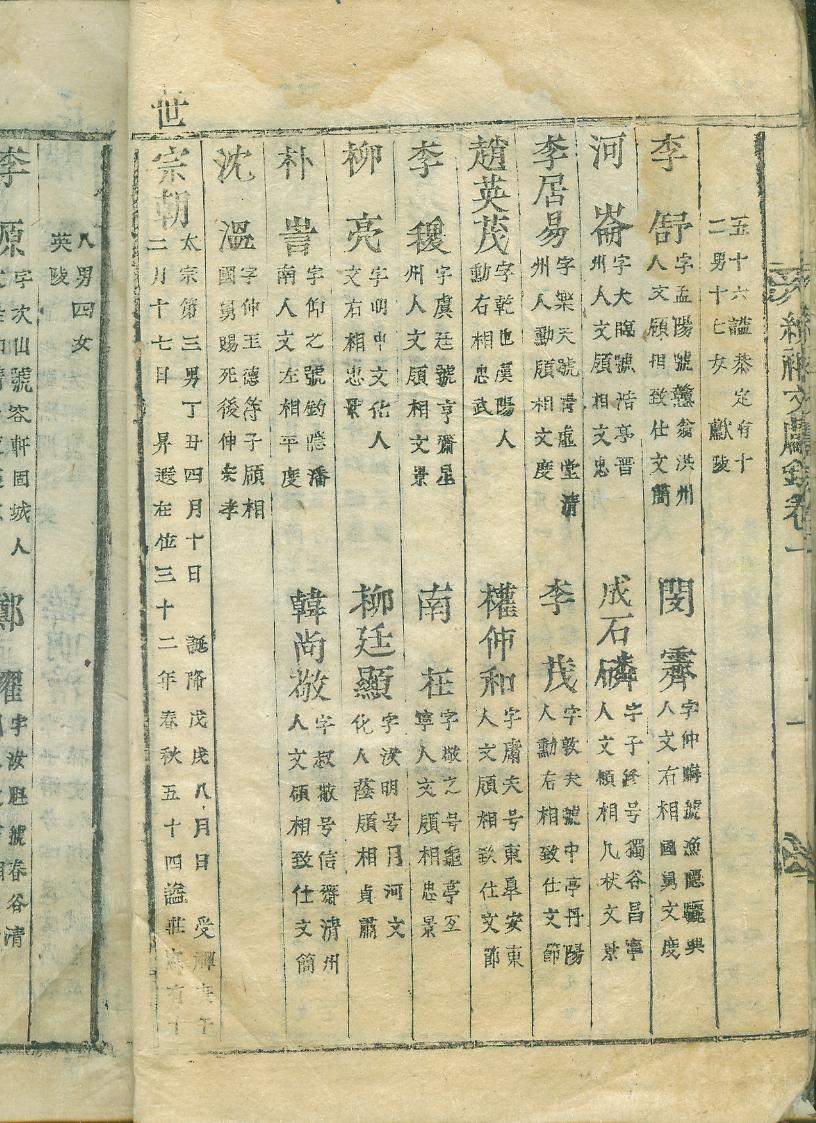 縉紳文獻錄卷一
一
五十六諡恭定有十
二男十七女 獻陵
李舒 字孟陽號戇翁洪州
人文領相致仕文簡
閔霽 字仲晦號漁隱驪興
人文右相國舅文度
河崙 字大臨號浩亭晋
州人文領相文忠
成石磷 字子修号獨谷昌寧
人文領相几杖文景
李居易 字樂天號清虛堂清
州人勳領相文度
李茂 字敦夫號中亭丹陽
人勳右相致仕文節
趙英茂 字乾也漢陽人
勳右相忠武
權仲和 字庸夫号東臯安東
人文領相致仕文節
李稷 字虞廷號亨齋星
州人文領相文景
南在 字敬之号龜亭宜
寧人文領相忠景
柳亮 字明中文化人
文右相忠景
柳廷顯 字汝明号月河文
化人蔭領相貞肅
朴訔 字仰之號釣隱潘
南人文左相平度
韓尚敬 字叔敬号信齋清州
人文領相致仕文簡
沈溫 字仲玉德符子領相
國舅賜死後伸安孝
世宗朝 太宗第三男丁丑四月十日 誕降戊戌八月日 受禪庚午
二月十七日 昇遐在位三十二年春秋五十四諡莊憲有十
八男四女
英陵
李原 字次山號容軒固城人
鄭擢 字汝魁號春谷清